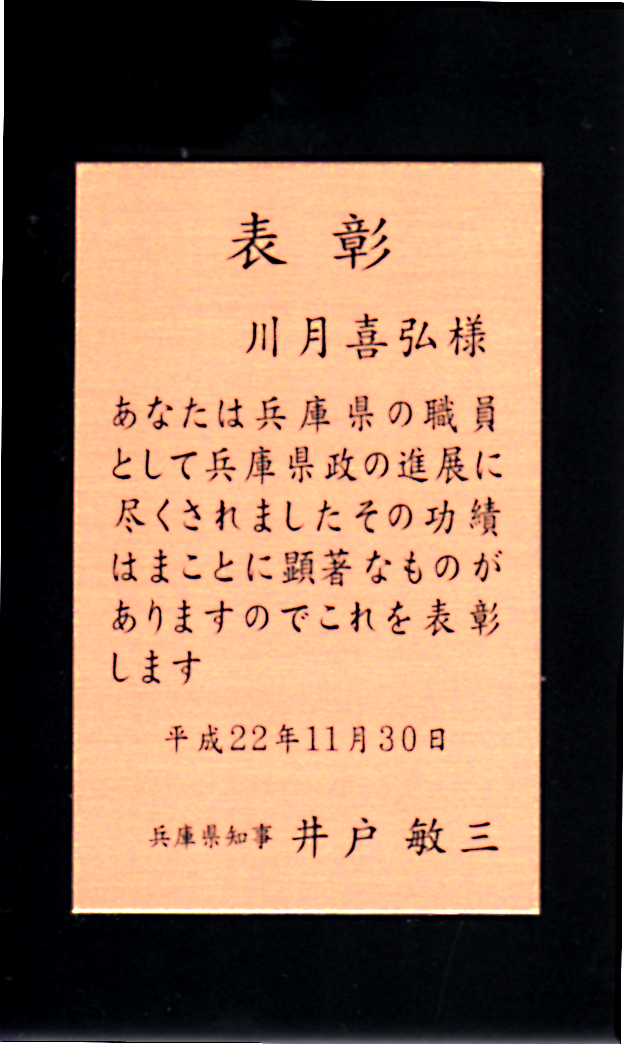 表彰
川月喜弘様
あなたは兵庫県の職員
として兵庫県政の進展に
尽くされましたその功績
はまことに顕著なものが
ありますのでこれを表彰
します
平成22年11月30日
兵庫県知事 井戸敏三